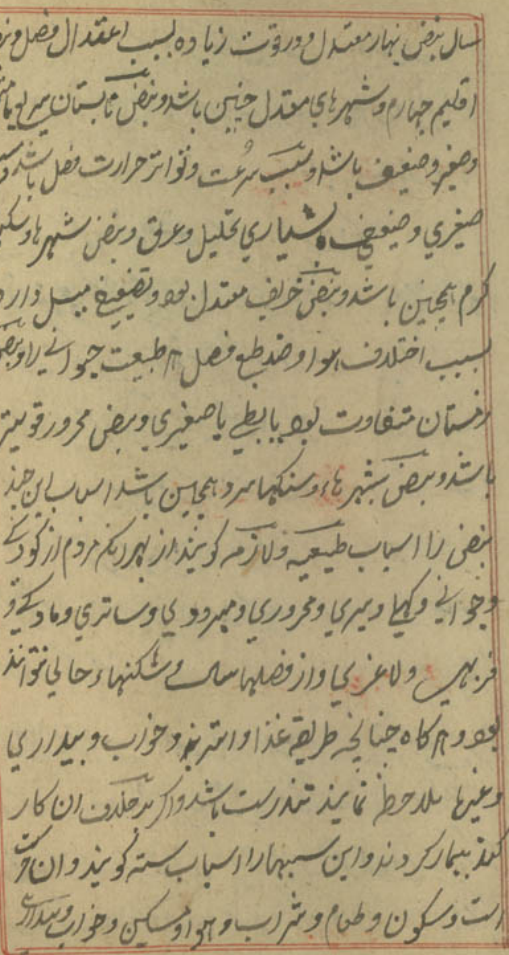 سال نبض بهار معتدل و در قوت زیاده بسبب اعتدال فصل و نبض
اقلیم چهارم و شهرهای معتدل چنین باشد و نبض تابستان سریع یا
وصغیر وضعیف باشد و سبب سرعت و تواتر حرارت فصل باشد و سبب
صغیری وضعیفی بسیاری تحلیل و عرق و نبض شهرها و
کرم همچنین باشد و نبض خریف معتدل بود و بضعیفی میل دارد
بسبب اختلاف هوا و ضد طبع فصل طبیعت جوانی را و نبض
زمستان متفاوت بود یا بطی یا صغیری و نبض محرور قویتر
باشد و نبض شهرهاء و سنکهاء سرد همچنین باشد اسباب این چند
نبض را اسباب طبیعیه ولازمه کویند از بهر انکه مردم از کودکی
وجوانی و کهلی و پیری و محروری ومبرودی و ساتری و مادکی و
فربهی ولاغری واز فصلها سال و شکنها خالی نتوانند
بود و هرکاه چنانچه طریقه غذا و اشربه وخواب و بیداری
وغیرها ملاحظ نمایند تندرست باشد و اکر بر خلاف ان کار
کنند بیمار کردند و این سببها را اسباب سته کویند و ان حرکت
است وسکون و طعام و شراب و هوا و مساکین و خواب و بیداری